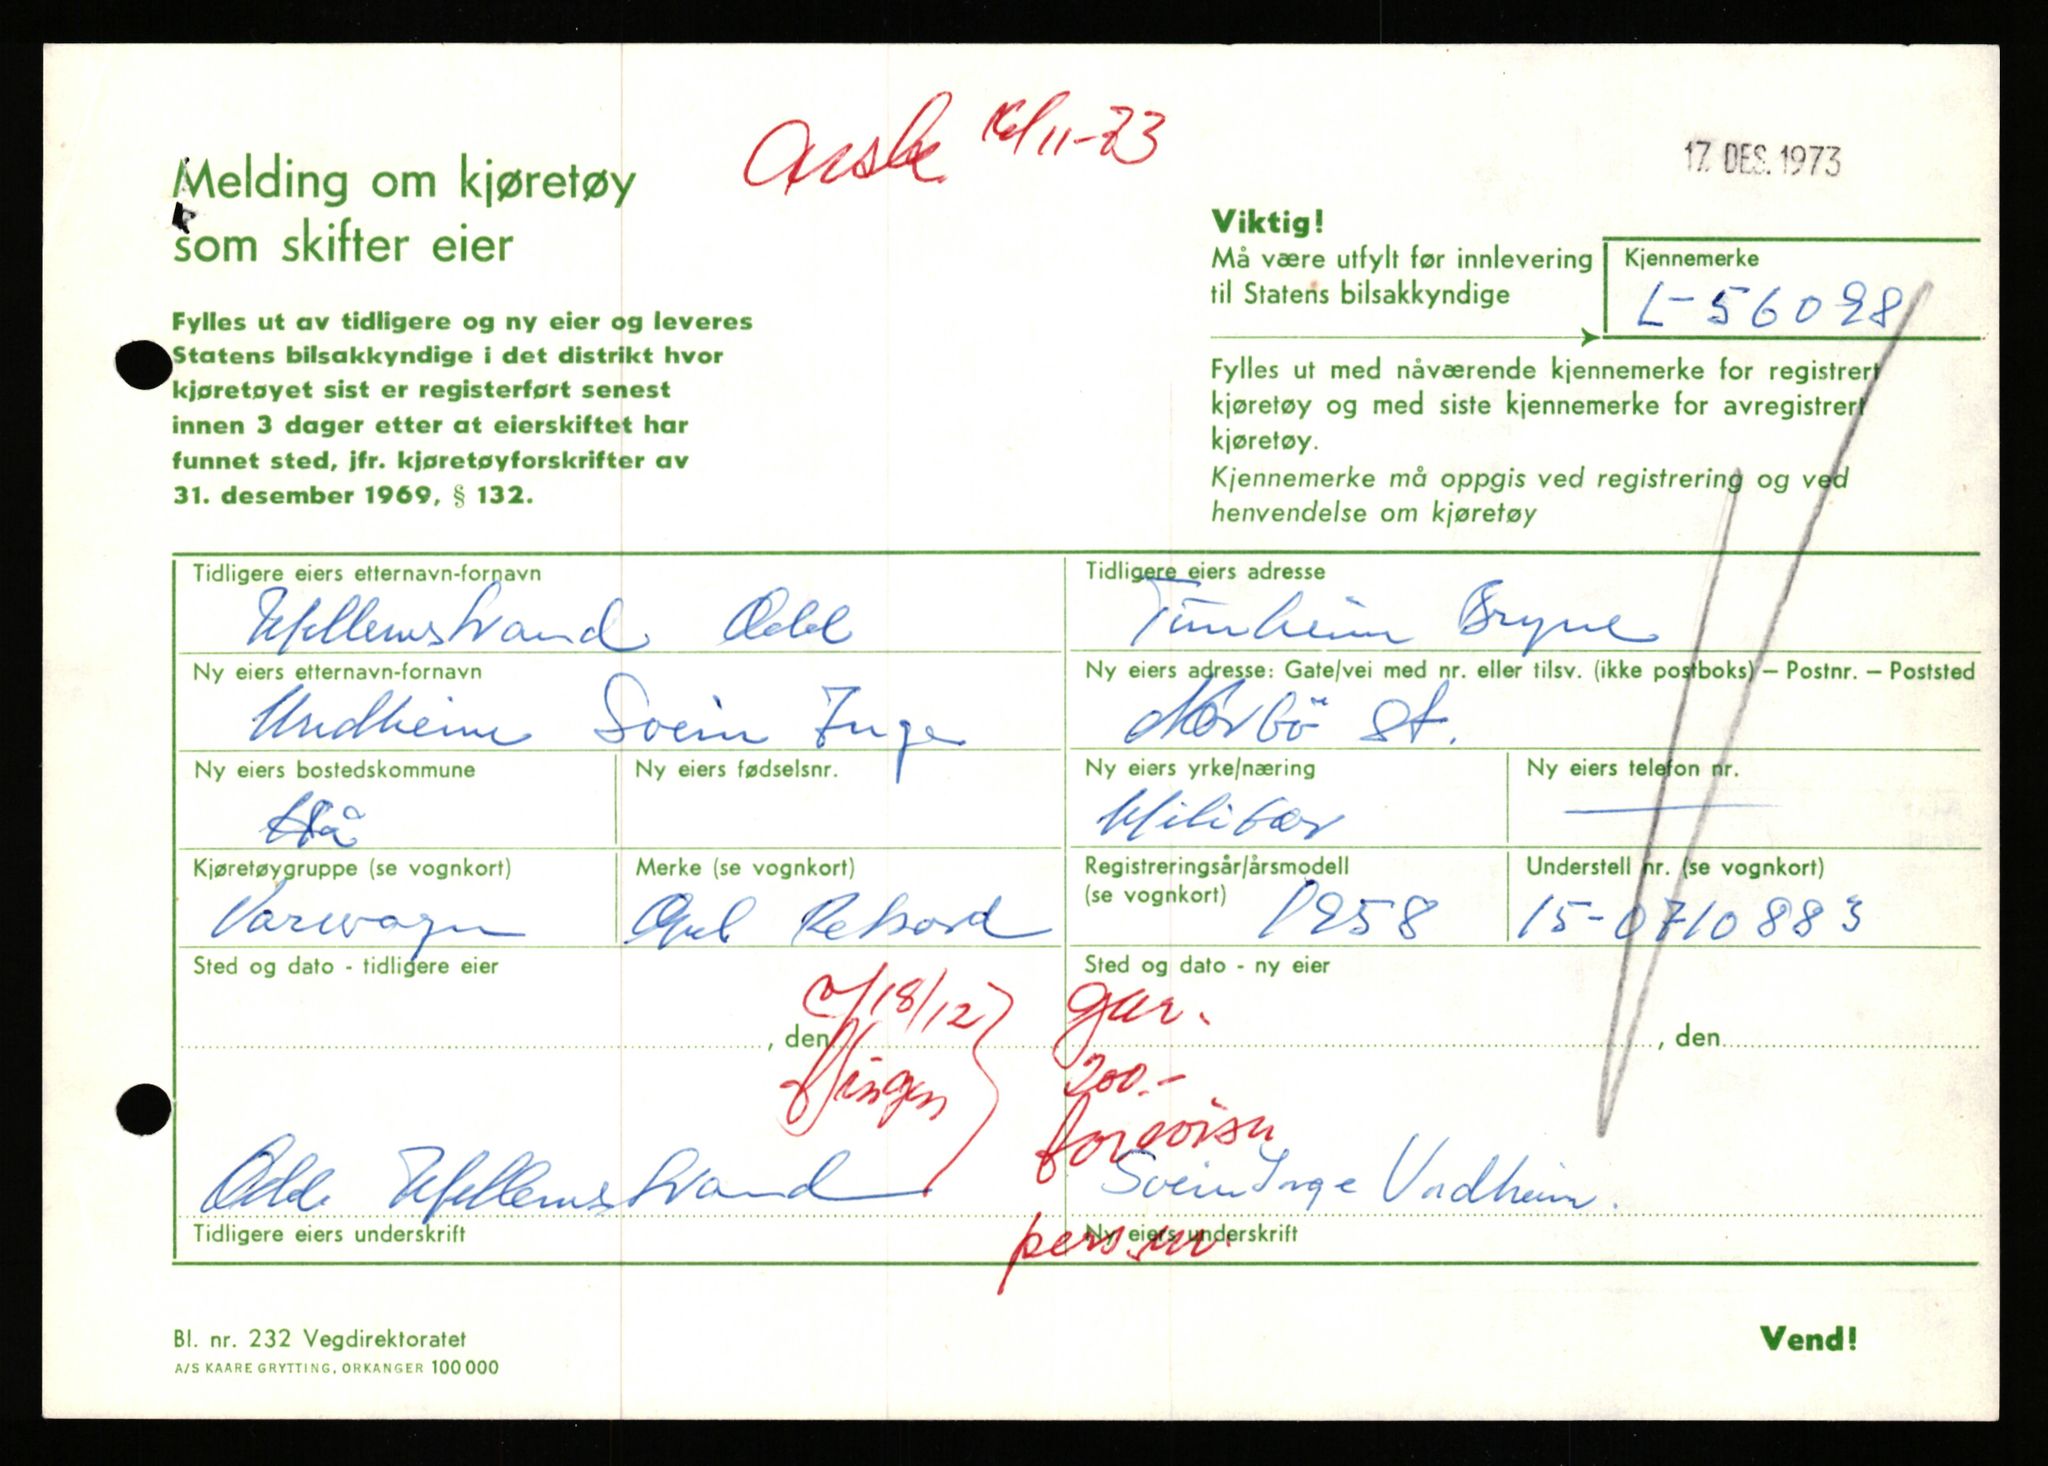 17. DES. 1973
Melding om kjøretøy
som skifter eier
Fylles ut av tidligere og ny eier og leveres
Statens bilsakkyndige i det distrikt hvor
kjøretøyet sist er registerført senest
innen 3 dager etter at eierskiftet har
funnet sted, jfr. kjøretøyforskrifter av
31. desember 1969, § 132.
Viktig!
Må være utfylt før innlevering
til Statens bilsakkyndige
Kjennemerke
L-56098
Fylles ut med nåværende kjennemerke for registrert
kjøretøy og med siste kjennemerke for avregistrert
kjøretøy.
Kjennemerke må oppgis ved registrering og ved
henvendelse om kjøretøy
Tidligere eiers etternavn-fornavn
Mellemstrand Odd
Tidligere eiers adresse
Tunheim Bryne
Ny eiers etternavn-fornavn
Undheim Svein Inge
Ny eiers adresse: Gate/vei med nr. eller tilsv. (ikke postboks) – Postnr. – Poststed
Nærbö st.
Ny eiers bostedskommune
Hå
Ny eiers fødselsnr.
Ny eiers yrke/næring
Militær
Ny eiers telefon nr.
Kjøretøygruppe (se vognkort)
Varevogn
Merke (se vognkort)
Opel Rekord
Registreringsår/årsmodell
(se vognkort)
1958
Understell nr. (se vognkort)
15-0710883
Sted og dato - tidligere eier
18/12
Sted og dato - ny eier
gar.
, den
, den
200.-
pers.nr.
Odd Mellemstrand
Svein Inge Undheim.
Tidligere eiers underskrift
Ny eiers underskrift
Bl. nr. 232 Vegdirektoratet
A/S KAARE GRYTTING, ORKANGER 100 000
Vend!